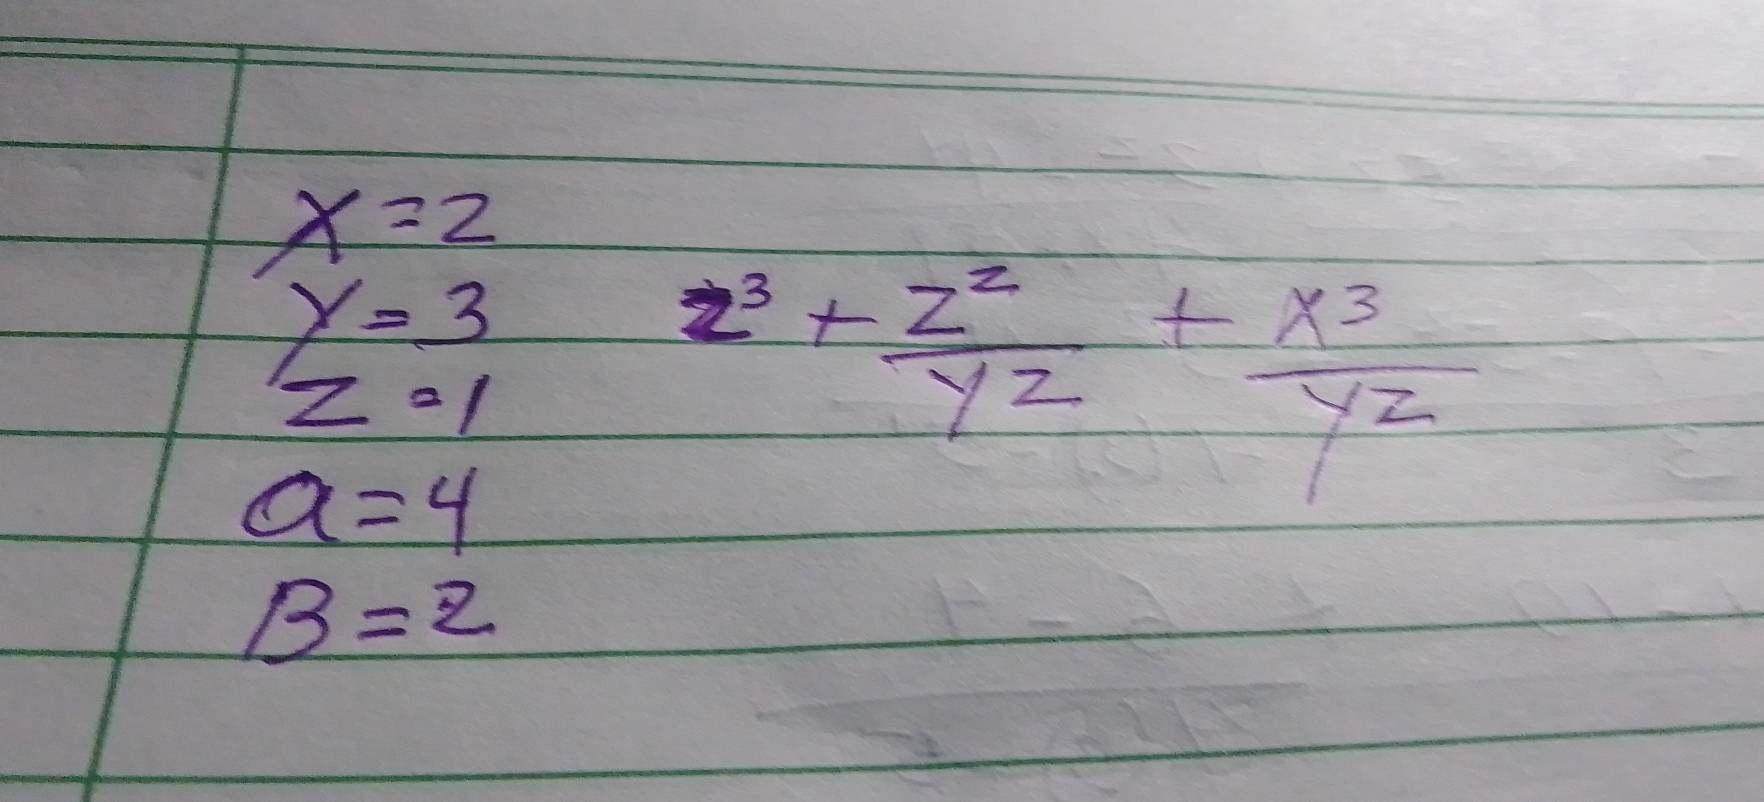 x = 2
y = 3
z = 1
a = 4
B = 2
z³ + z²/yz + x³/yz